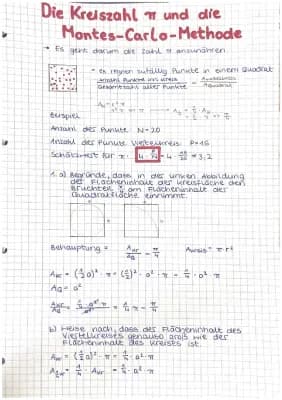 Die Kreiszahl π und die
Montes-Carlo-Methode
→ Es geht darum die Zahl π anzunähren.
- es regnen zufällig Punkte in einem Quadrat
Anzahl Punkte ins Kreis
Gesamtzahl aller Punkte
Beispiel
Anzahl der Punkte N=20
Anzahl der Punkte Viertelkreis: P=16
Schätzwert für π: 4 · = 4 · 16/20 = 3,2
1. a) Begründe, dass in der unken Abbildung
der Flächeninhalt der Kreisfläche den
Bruchteil π/4 am Flächeninhalt der
Quadratfläche einnimmt.
Behauptung = = π/4 A = π · r²
= (1/2 a)² · π = (1/2)² · a² · π = 1/4 · a² · π
AQ = a²
= 1/4 π = π/4
b) Weise nach, dass der Flächeninhalt des
Viertelkreises genauso groß wie der
Flächeninhalt des Kreises ist.
= (1/2 a)² · π = 1/4 · a² · π